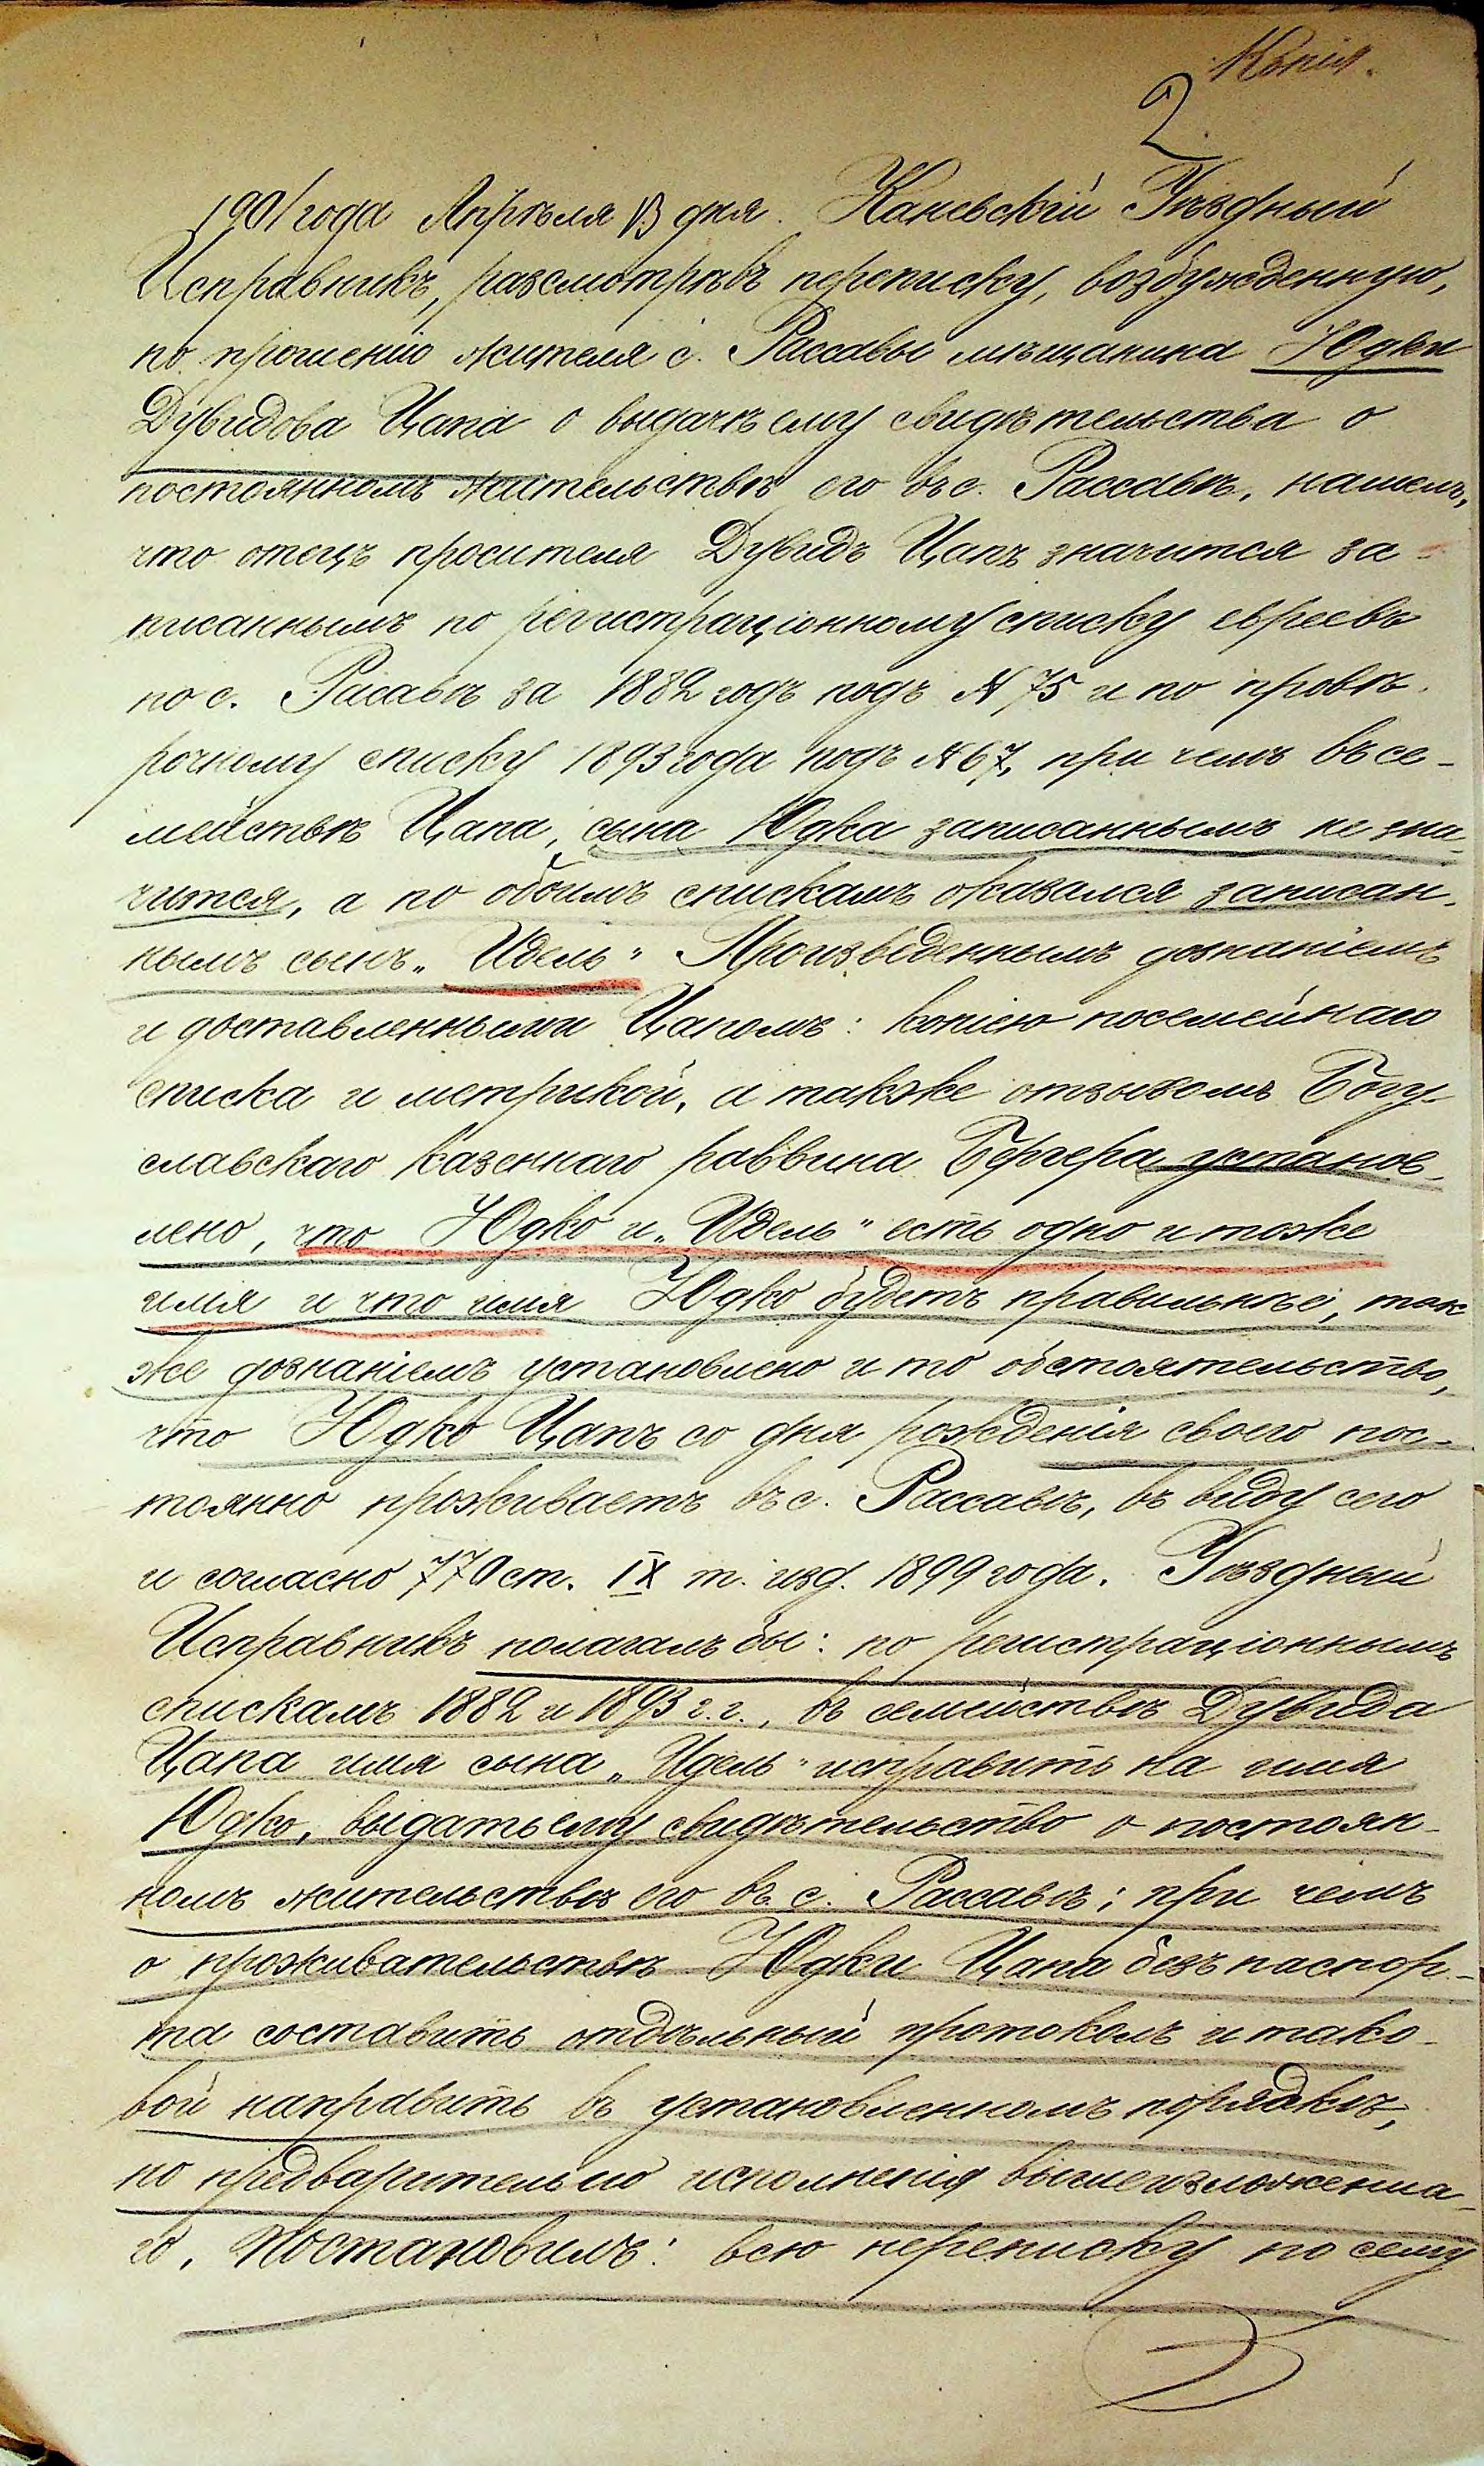 Копія.
2
1901 года Апрѣля 13 дня. Каневскій Уѣздный
Исправникъ, разсмотрѣвъ переписку, возбужденную,
по прошенію жителя с. Рассавы мѣщанина Юдки
Дувидова Цапа о выдачѣ ему свидѣтельства о
постоянномъ жительствѣ его въ с. Рассавѣ, нашелъ,
что отецъ просителя Дувидъ Цапъ значится за-
писаннымъ по регистраціонному списку евреевъ
по с. Расавѣ за 1882 годъ подъ № 75 и по провѣ-
рочному списку 1893 года подъ № 67, при чемъ въ се-
мействѣ Цапа, сына Юдка записаннымъ не зна-
чится, а по обоимъ спискамъ оказался записан-
нымъ сынъ „Идель" Произведеннымъ дознаніемъ
и доставленными Цапомъ: копіею посемейнаго
списка и метрикой, а также отзывомъ Богу-
славскаго казеннаго раввина Бергера установ-
лено, что Юдко и „Идель" есть одно и тоже
имя и что имя Юдко будетъ правильнѣе, так
же дознаніемъ установлено и то обстоятельство,
что Юдко Цапъ со дня рожденія своего пос-
тоянно проживаетъ въ с. Рассавѣ, въ виду сего
и согласно 770 ст. IX т. изд. 1899 года. Уѣздный
Исправникъ полагалъ бы: по регистраціоннымъ
спискамъ 1882 и 1893 г.г., въ семействѣ Дувида
Цапа имя сына „Идель" исправить на имя
Юдко, выдать ему свидѣтельство о постоян-
номъ жительствѣ его въ с. Рассавѣ; при чемъ
о проживательствѣ Юдки Цапа безъ паспор-
та составить отдѣльный протоколъ и тако-
вой направить въ установленномъ порядкѣ,
но предварительно исполненія вышеизложенна-
го, Постановилъ: всю переписку по сему